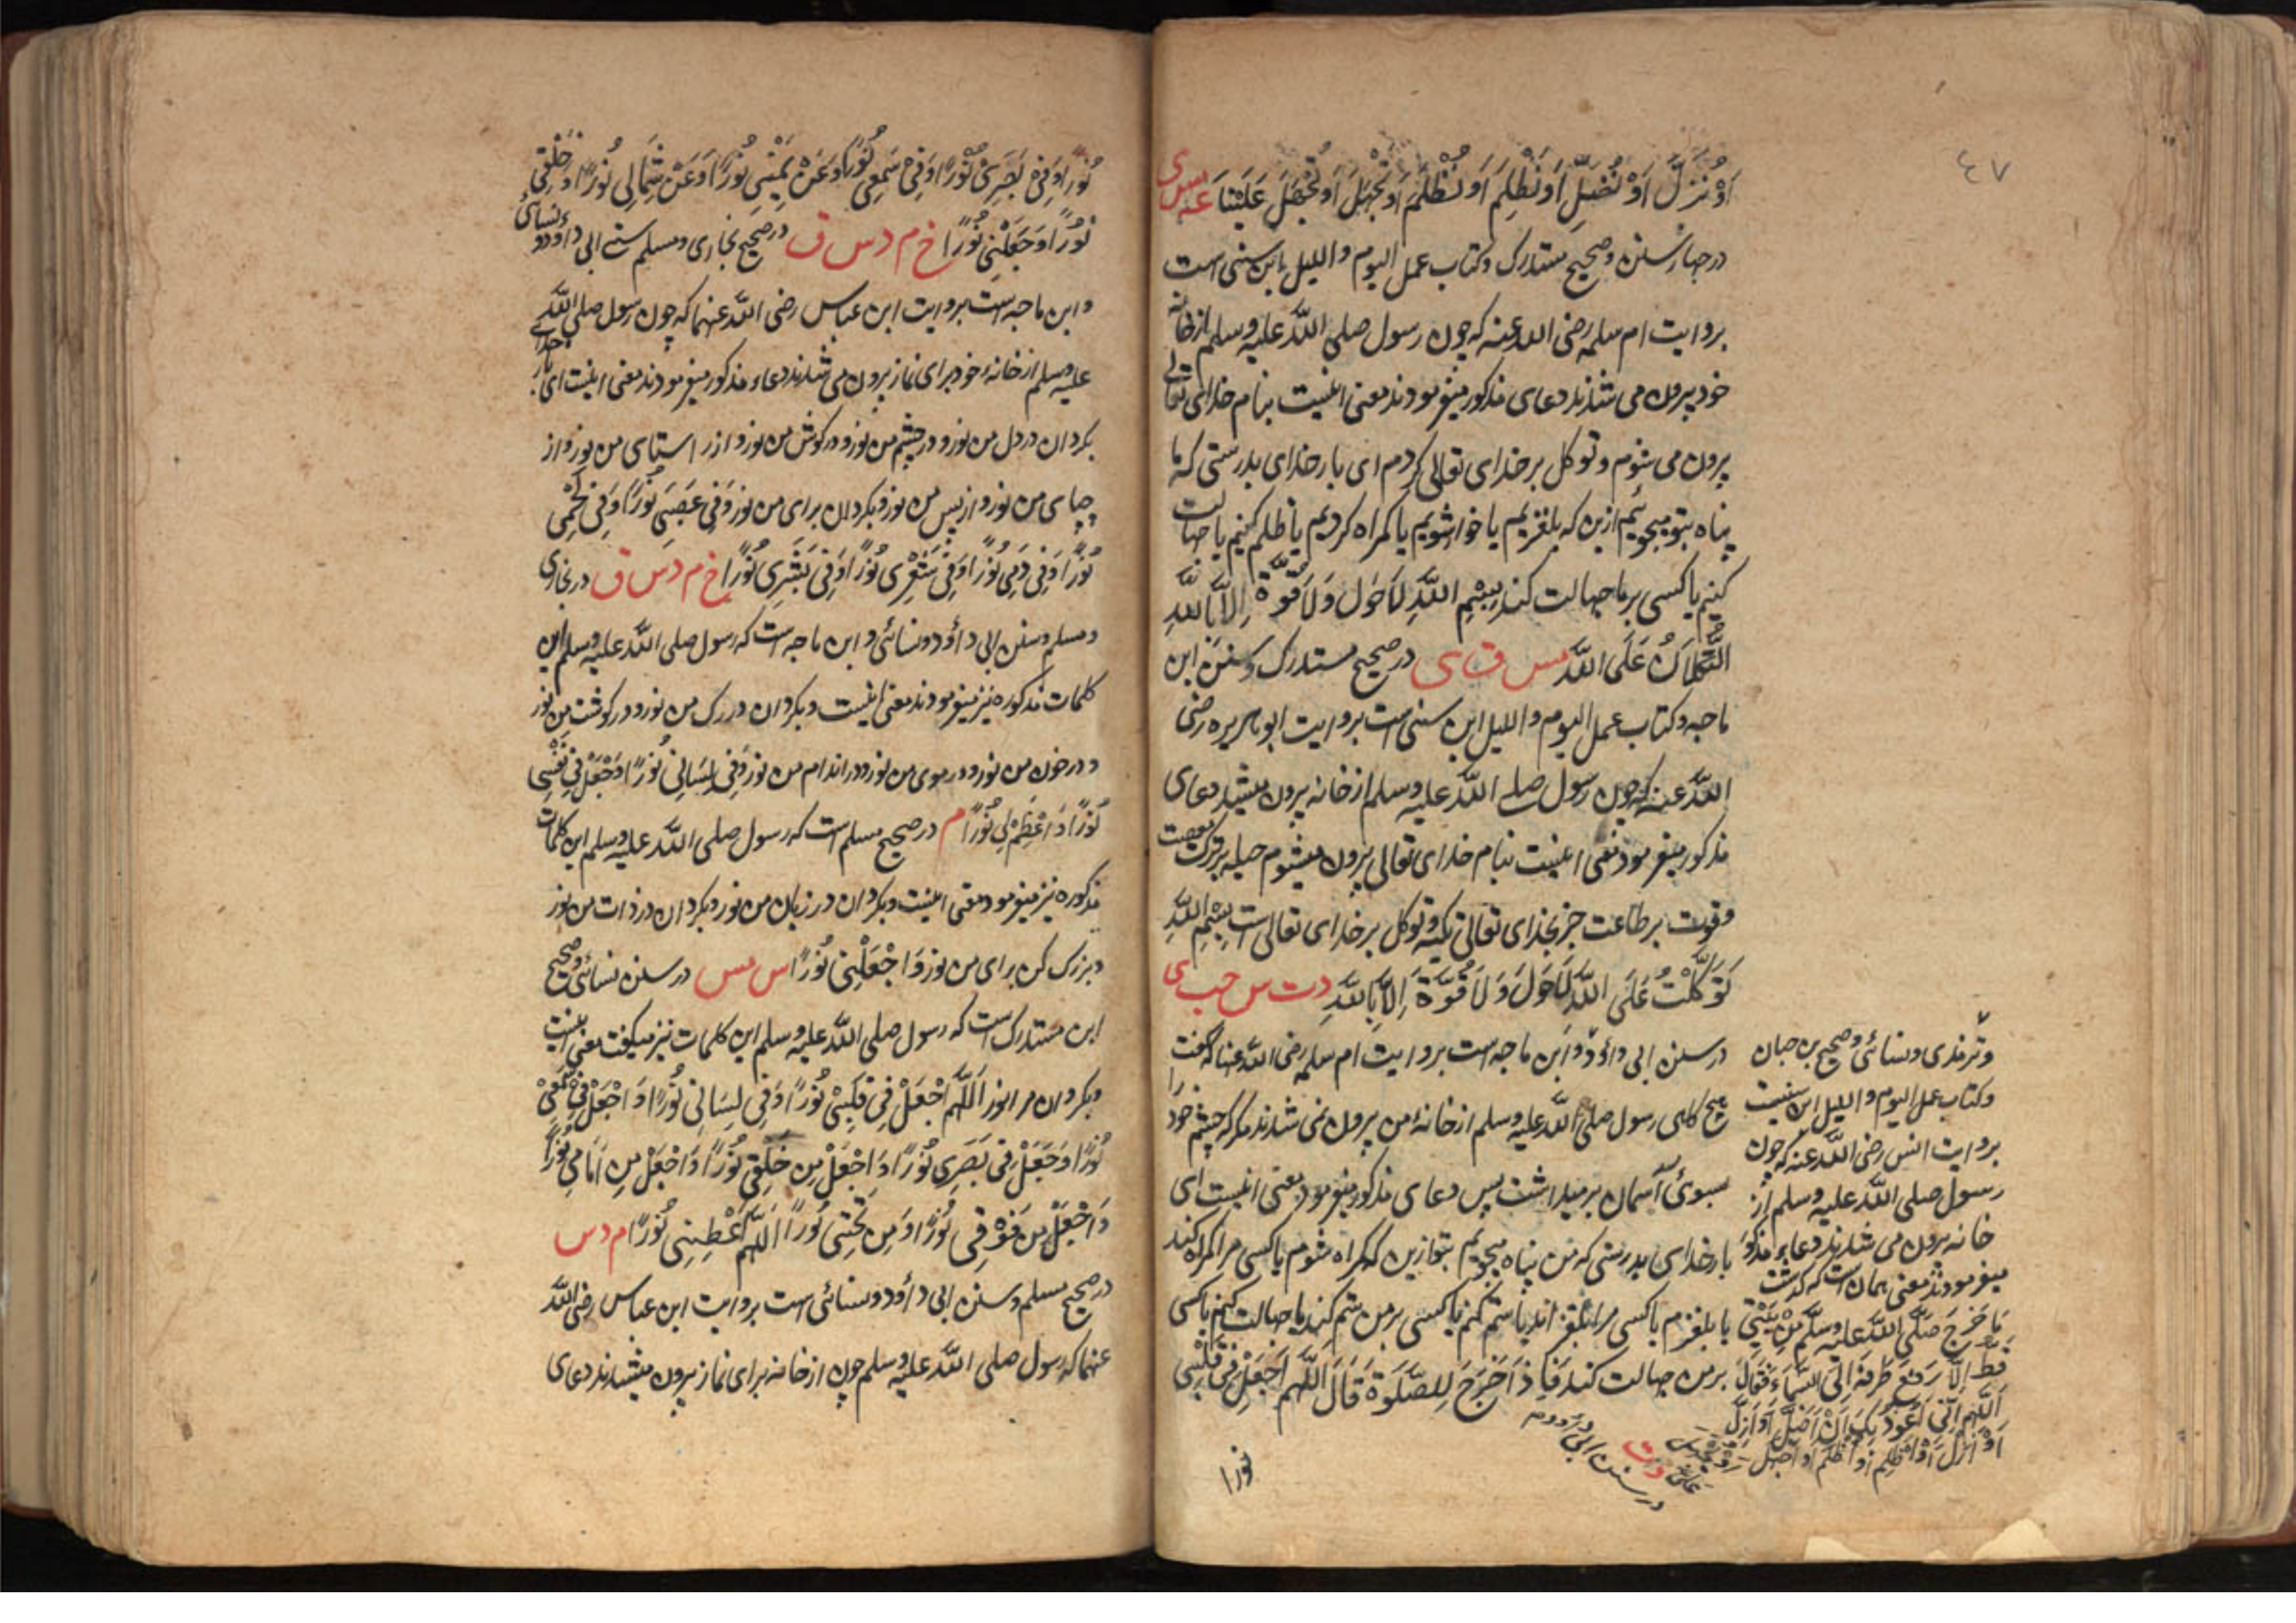 ٤٧
اَوْ نُزَلَّ اَوْ نُضِلَّ اَوْ نَظْلِمَ اَوْ نُظْلَمَ اَوْ نَجْهَلَ اَوْ يُجْهَلَ عَلَيْنَا عه مس ى
در چهار سنن و صحیح مستدرک و کتاب عمل الیوم و اللیل ابن سنی است
بروایت ام سلمه رضی الله عنه که چون رسول صلی الله علیه وسلم از خانه
خود بیرون می شدند دعای مذکور میفرمودند معنی اینست بنام خدای تعالی
بیرون می شوم و توکل بر خدای تعالی کردم ای بار خدای بدرستی که ما
پناه بتو میجوئیم ازین که بلغزیم یا خوار شویم یا کمراه کردیم یا ظلم کنیم یا جهالت
کنیم یا کسی بر ما جهالت کند بِسْمِ اللّٰهِ لَا حَوْلَ وَلَا قُوَّةَ اِلَّا بِاللّٰهِ
التُّكْلَانُ عَلَى اللّٰهِ مس ق ى در صحیح مستدرک و سنن ابن
ماجه و کتاب عمل الیوم و اللیل ابن سنی است بروایت ابو هریره رضی
الله عنه که چون رسول صلی الله علیه وسلم از خانه بیرون میشد دعای
مذکور میفرمود معنی اینست بنام خدای تعالی بیرون میشوم حیله بر ترک معصیت
و قوت بر طاعت جز بخدای تعالی تکیه و توکل بر خدای تعالی است بِسْمِ اللّٰهِ
تَوَكَّلْتُ عَلَى اللّٰهِ لَا حَوْلَ وَلَا قُوَّةَ اِلَّا بِاللّٰهِ د ت س حب ى
در سنن ابی داؤد و ابن ماجه است بروایت ام سلمه رضی الله عنها که گفت
هیچ کاهی رسول صلی الله علیه وسلم از خانهٔ من بیرون نمی شدند مکر که چشم خود را
سوی آسمان بر میداشت پس دعای مذکور میفرمود معنی اینست ای
بار خدای بدرستی که من پناه میجویم بتو ازین که کمراه شوم یا کسی مرا کمراه کند
یا بلغزم یا کسی مرا بلغزاند یا ستم کنم یا کسی بر من ستم کند یا جهالت کنم یا کسی
بر من جهالت کند فَاِذَا خَرَجَ لِلصَّلٰوةِ قَالَ اللّٰهُمَّ اجْعَلْ فِي قَلْبِي
نورا
و ترمذی و نسائی و صحیح بن حبان
و کتاب عمل الیوم و اللیل ابن سنیست
بروایت انس رضی الله عنه که چون
رسول صلی الله علیه وسلم از
خانه بیرون می شدند دعاء مذکور
میفرمودند معنی همان است که گذشت
مَا خَرَجَ صَلَّى اللّٰهُ عَلَيْهِ وَسَلَّمَ مِنْ بَيْتِي
قَطُّ اِلَّا رَفَعَ طَرْفَهُ اِلَى السَّمَاءِ فَقَالَ
اَللّٰهُمَّ اِنِّي اَعُوذُ بِكَ اَنْ اَضِلَّ اَوْ اُزِلَّ
اَوْ اُزَلَّ اَوْ اَظْلِمَ اَوْ اُظْلَمَ اَوْ اَجْهَلَ اَوْ يُجْهَلَ
عَلَيَّ د ق
در سنن ابی داؤد
نُوْرًا وَفِي بَصَرِي نُوْرًا وَفِي سَمْعِي نُوْرًا وَعَنْ يَمِيْنِي نُوْرًا وَعَنْ شِمَالِي نُوْرًا وَخَلْفِي
نُوْرًا وَجَعَلْنِي نُوْرًا خ م د س ق در صحیح بخاری و مسلم است ابی داؤد و نسائی
و ابن ماجه است بروایت ابن عباس رضی الله عنهما که چون رسول صلی الله
علیه وسلم از خانهٔ خود برای نماز بیرون می شدند دعاء مذکور میفرمودند معنی اینست ای بار خدای
بکردان در دل من نور و در چشم من نور و در کوش من نور و از راستای من نور و از
چپای من نور و از پس من نور و بکردان برای من نور وَفِي عَصَبِي نُوْرًا وَفِي لَحْمِي
نُوْرًا وَفِي دَمِي نُوْرًا وَفِي شَعْرِي نُوْرًا وَفِي بَشَرِي نُوْرًا خ م د س ق در بخاری
و مسلم و سنن ابی داؤد و نسائی و ابن ماجه است که رسول صلی الله علیه وسلم این
کلمات مذکوره نیز میفرمودند معنی اینست و بکردان در رک من نور و در کوشت من نور
و در خون من نور و در موی من نور و در اندام من نور وَفِي لِسَانِي نُوْرًا وَجْعَلْ فِي نَفْسِي
نُوْرًا وَاَعْظِمْ لِي نُوْرًا م در صحیح مسلم است که رسول صلی الله علیه وسلم این کلمات
مذکوره نیز میفرمود معنی اینست و بکردان در زبان من نور و بکردان در ذات من نور
و بزرک کن برای من نور وَاجْعَلْنِي نُوْرًا س مس در سنن نسائی و صحیح
ابن مستدرک است که رسول صلی الله علیه وسلم این کلمات نیز میکفت معنی اینست
و بکردان مرا نور اَللّٰهُمَّ اجْعَلْ فِي قَلْبِي نُوْرًا وَفِي لِسَانِي نُوْرًا وَاجْعَلْ فِي سَمْعِي
نُوْرًا وَجَعَلْ فِي بَصَرِي نُوْرًا وَاجْعَلْ مِنْ خَلْفِي نُوْرًا وَاجْعَلْ مِنْ اَمَامِي نُوْرًا
وَاجْعَلْ مِنْ فَوْقِي نُوْرًا وَمِنْ تَحْتِي نُوْرًا اَللّٰهُمَّ اَعْطِنِي نُوْرًا م د س
در صحیح مسلم و سنن ابی داؤد و نسائی است بروایت ابن عباس رضی الله
عنهما که رسول صلی الله علیه وسلم چون از خانه برای نماز بیرون میشدند دعای